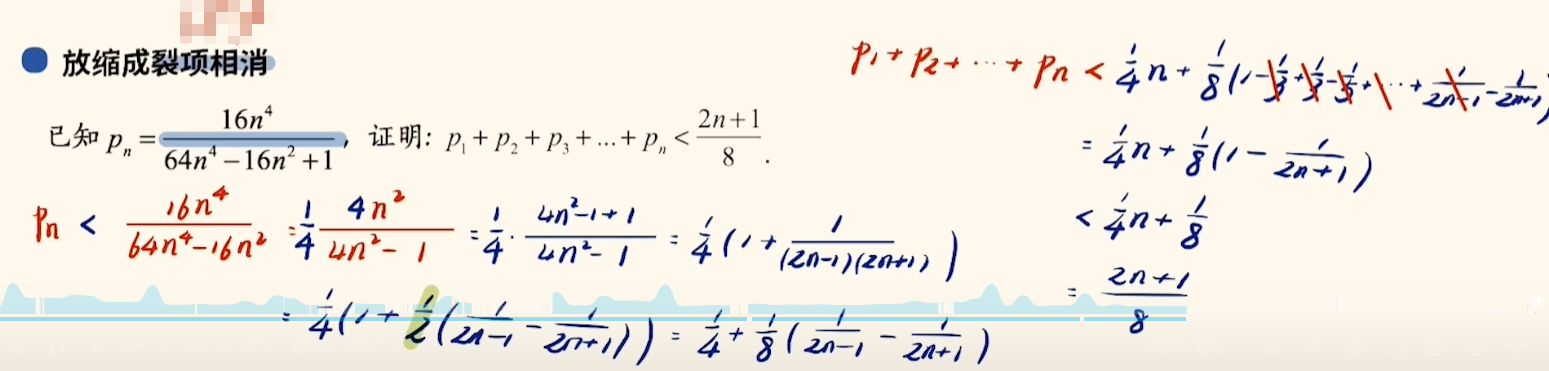 放缩成裂项相消
已知 pₙ = 16n⁴/(64n⁴−16n²+1)，证明：p₁+p₂+p₃+...+pₙ < (2n+1)/8 .
pₙ < 16n⁴/(64n⁴−16n²) = 1/4 4n²/(4n²−1) = 1/4 · (4n²−1+1)/(4n²−1) = 1/4 (1+1/((2n−1)(2n+1)))
= 1/4 (1+1/2 (1/(2n−1) − 1/(2n+1))) = 1/4 + 1/8 (1/(2n−1) − 1/(2n+1))
p₁+p₂+···+pₙ < 1/4 n + 1/8 (1−1/3+1/3−1/5+···+1/(2n−1) − 1/(2n+1))
= 1/4 n + 1/8 (1 − 1/(2n+1))
< 1/4 n + 1/8
= (2n+1)/8